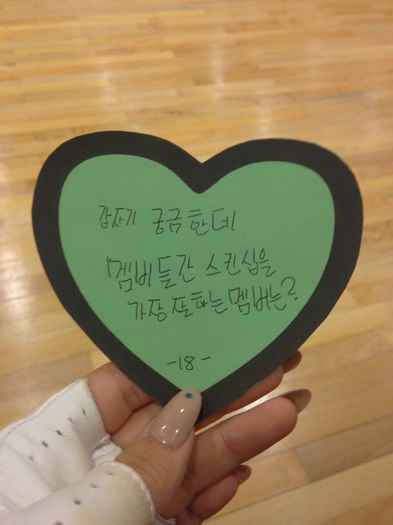 갑자기 궁금한데
'멤버들간 스킨십을
가장 잘하는 멤버는?
-18-